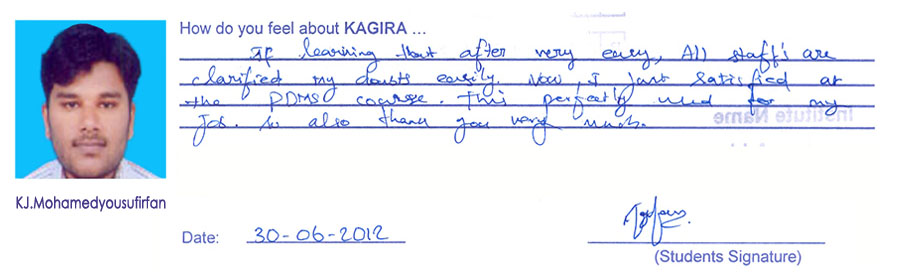 How do you feel about KAGIRA ...
If learning that after very easy, All staff's are
clarified my doubts easily. Now, I just satisfied at
the PDMS course. This perfectly used for my
Job. so also thank you very much.
Institute Name
KJ.Mohamedyousufirfan
Date: 30-06-2012
(Students Signature)